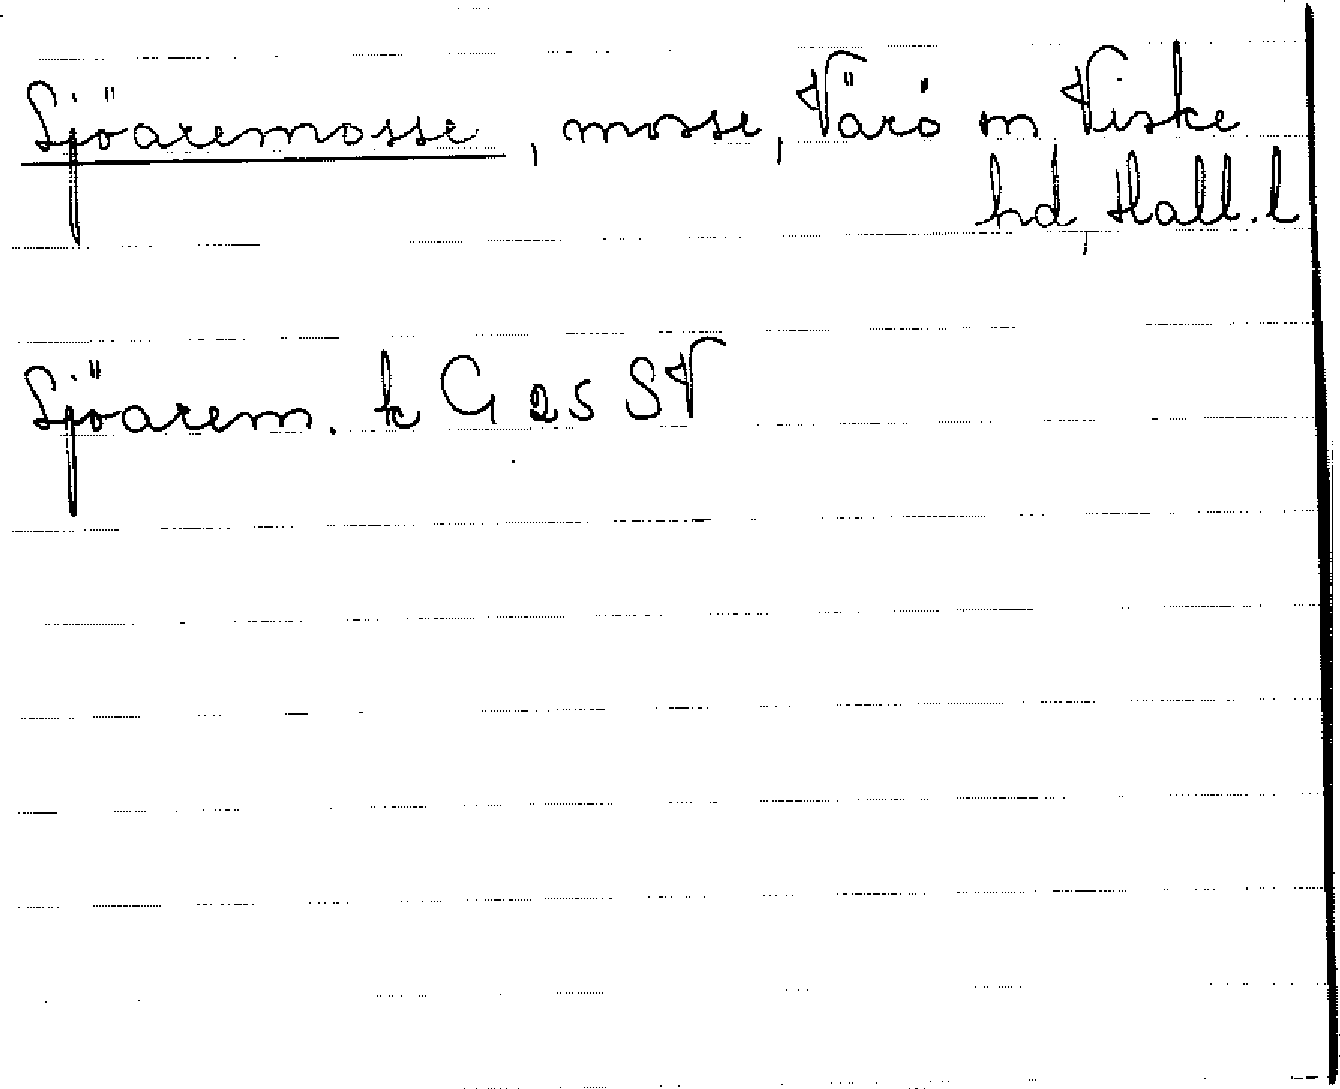 Sjöaremosse, mosse, Värö sn, Viske
hd, Hall. l
Sjöarem. k G 25 SV